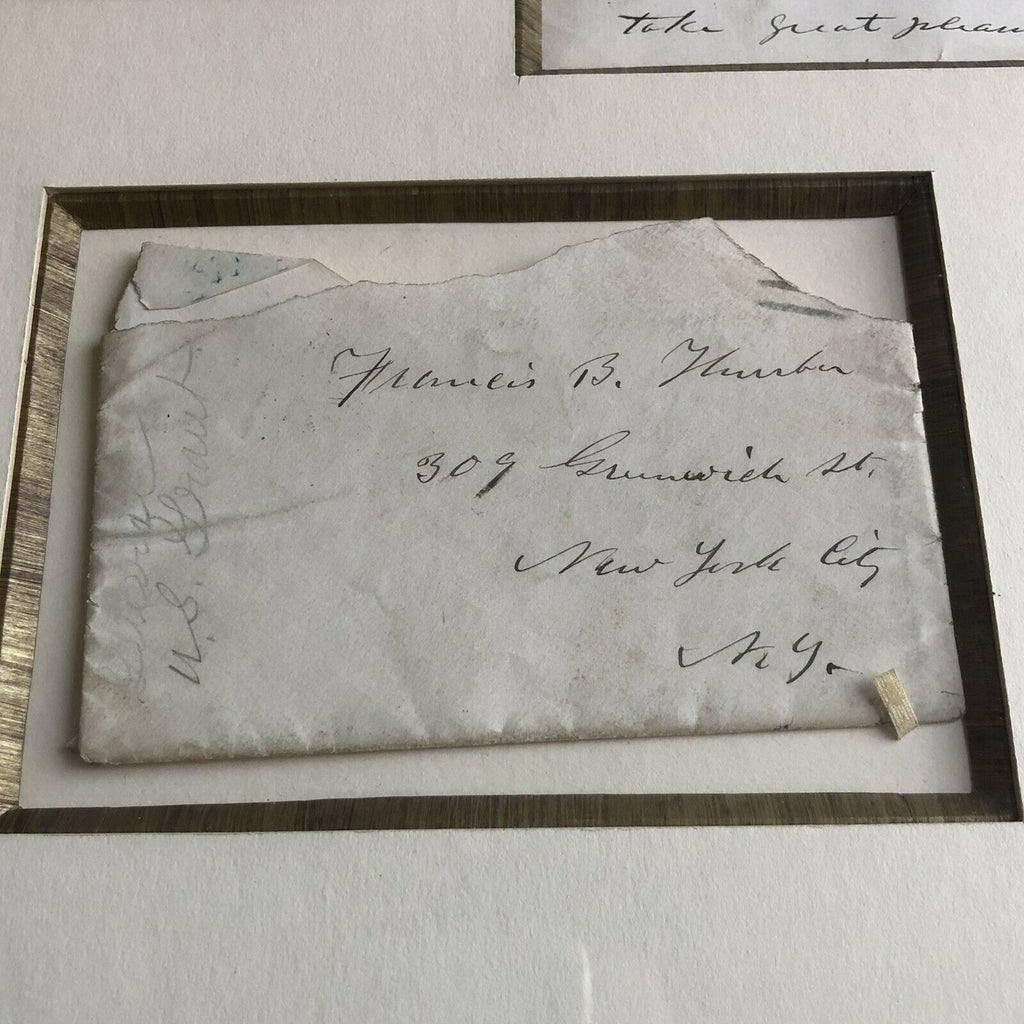 take great pleas
Francis B. Thurber
309 Greenwich St.
New York City
N. Y.
U. S. Grant